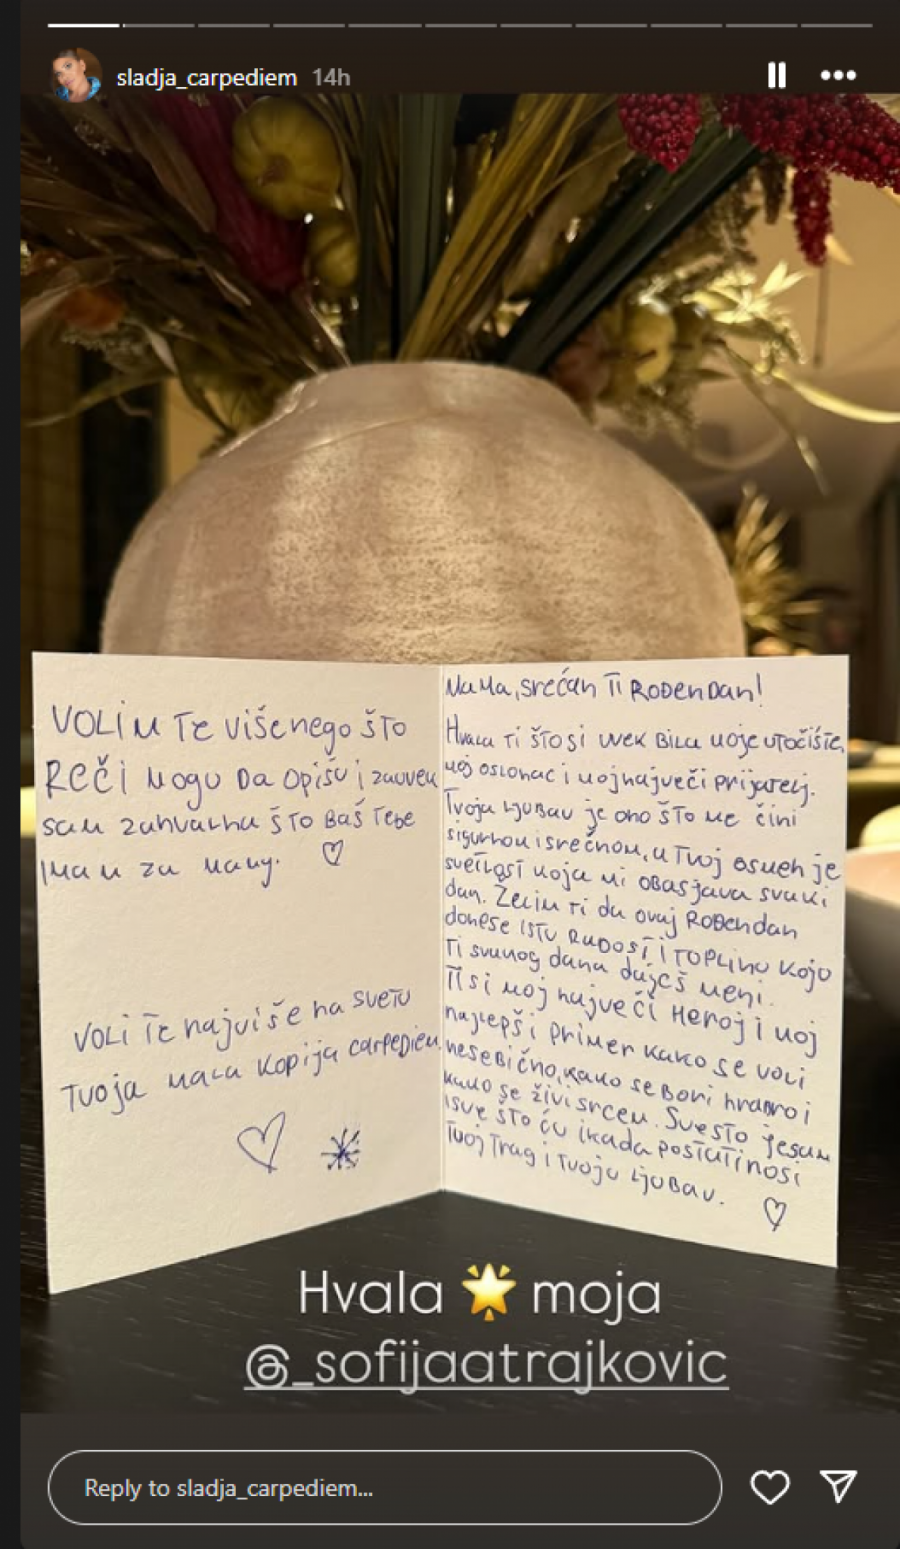 sladja_carpediem 14h
Mama, srećan Ti Rođendan!
Hvala Ti što si uvek bila moje utočište,
moj oslonac i moj najveći prijatelj.
Tvoja ljubav je ono što me čini
sigurnom i srećnom, a Tvoj osmeh je
svetlost koja mi obasjava svaki
dan. Želim Ti da ovaj Rođendan
donese istu radost i toplinu koju
Ti svakog dana daješ meni.
Ti si moj najveći Heroj i moj
najlepši primer kako se voli
nesebično, kako se bori hrabro i
kako se živi srcem. Sve što jesam
i sve što ću ikada postati nosi
Tvoj Trag i Tvoju ljubav. ♡
Volim Te više nego što
Reči mogu da opišu i zauvek
sam zahvalna što baš Tebe
imam za mamu. ♡
Voli Te najviše na svetu
Tvoja mala kopija carpediem.
Hvala 🌟 moja
@_sofijaatrajkovic
Reply to sladja_carpediem...